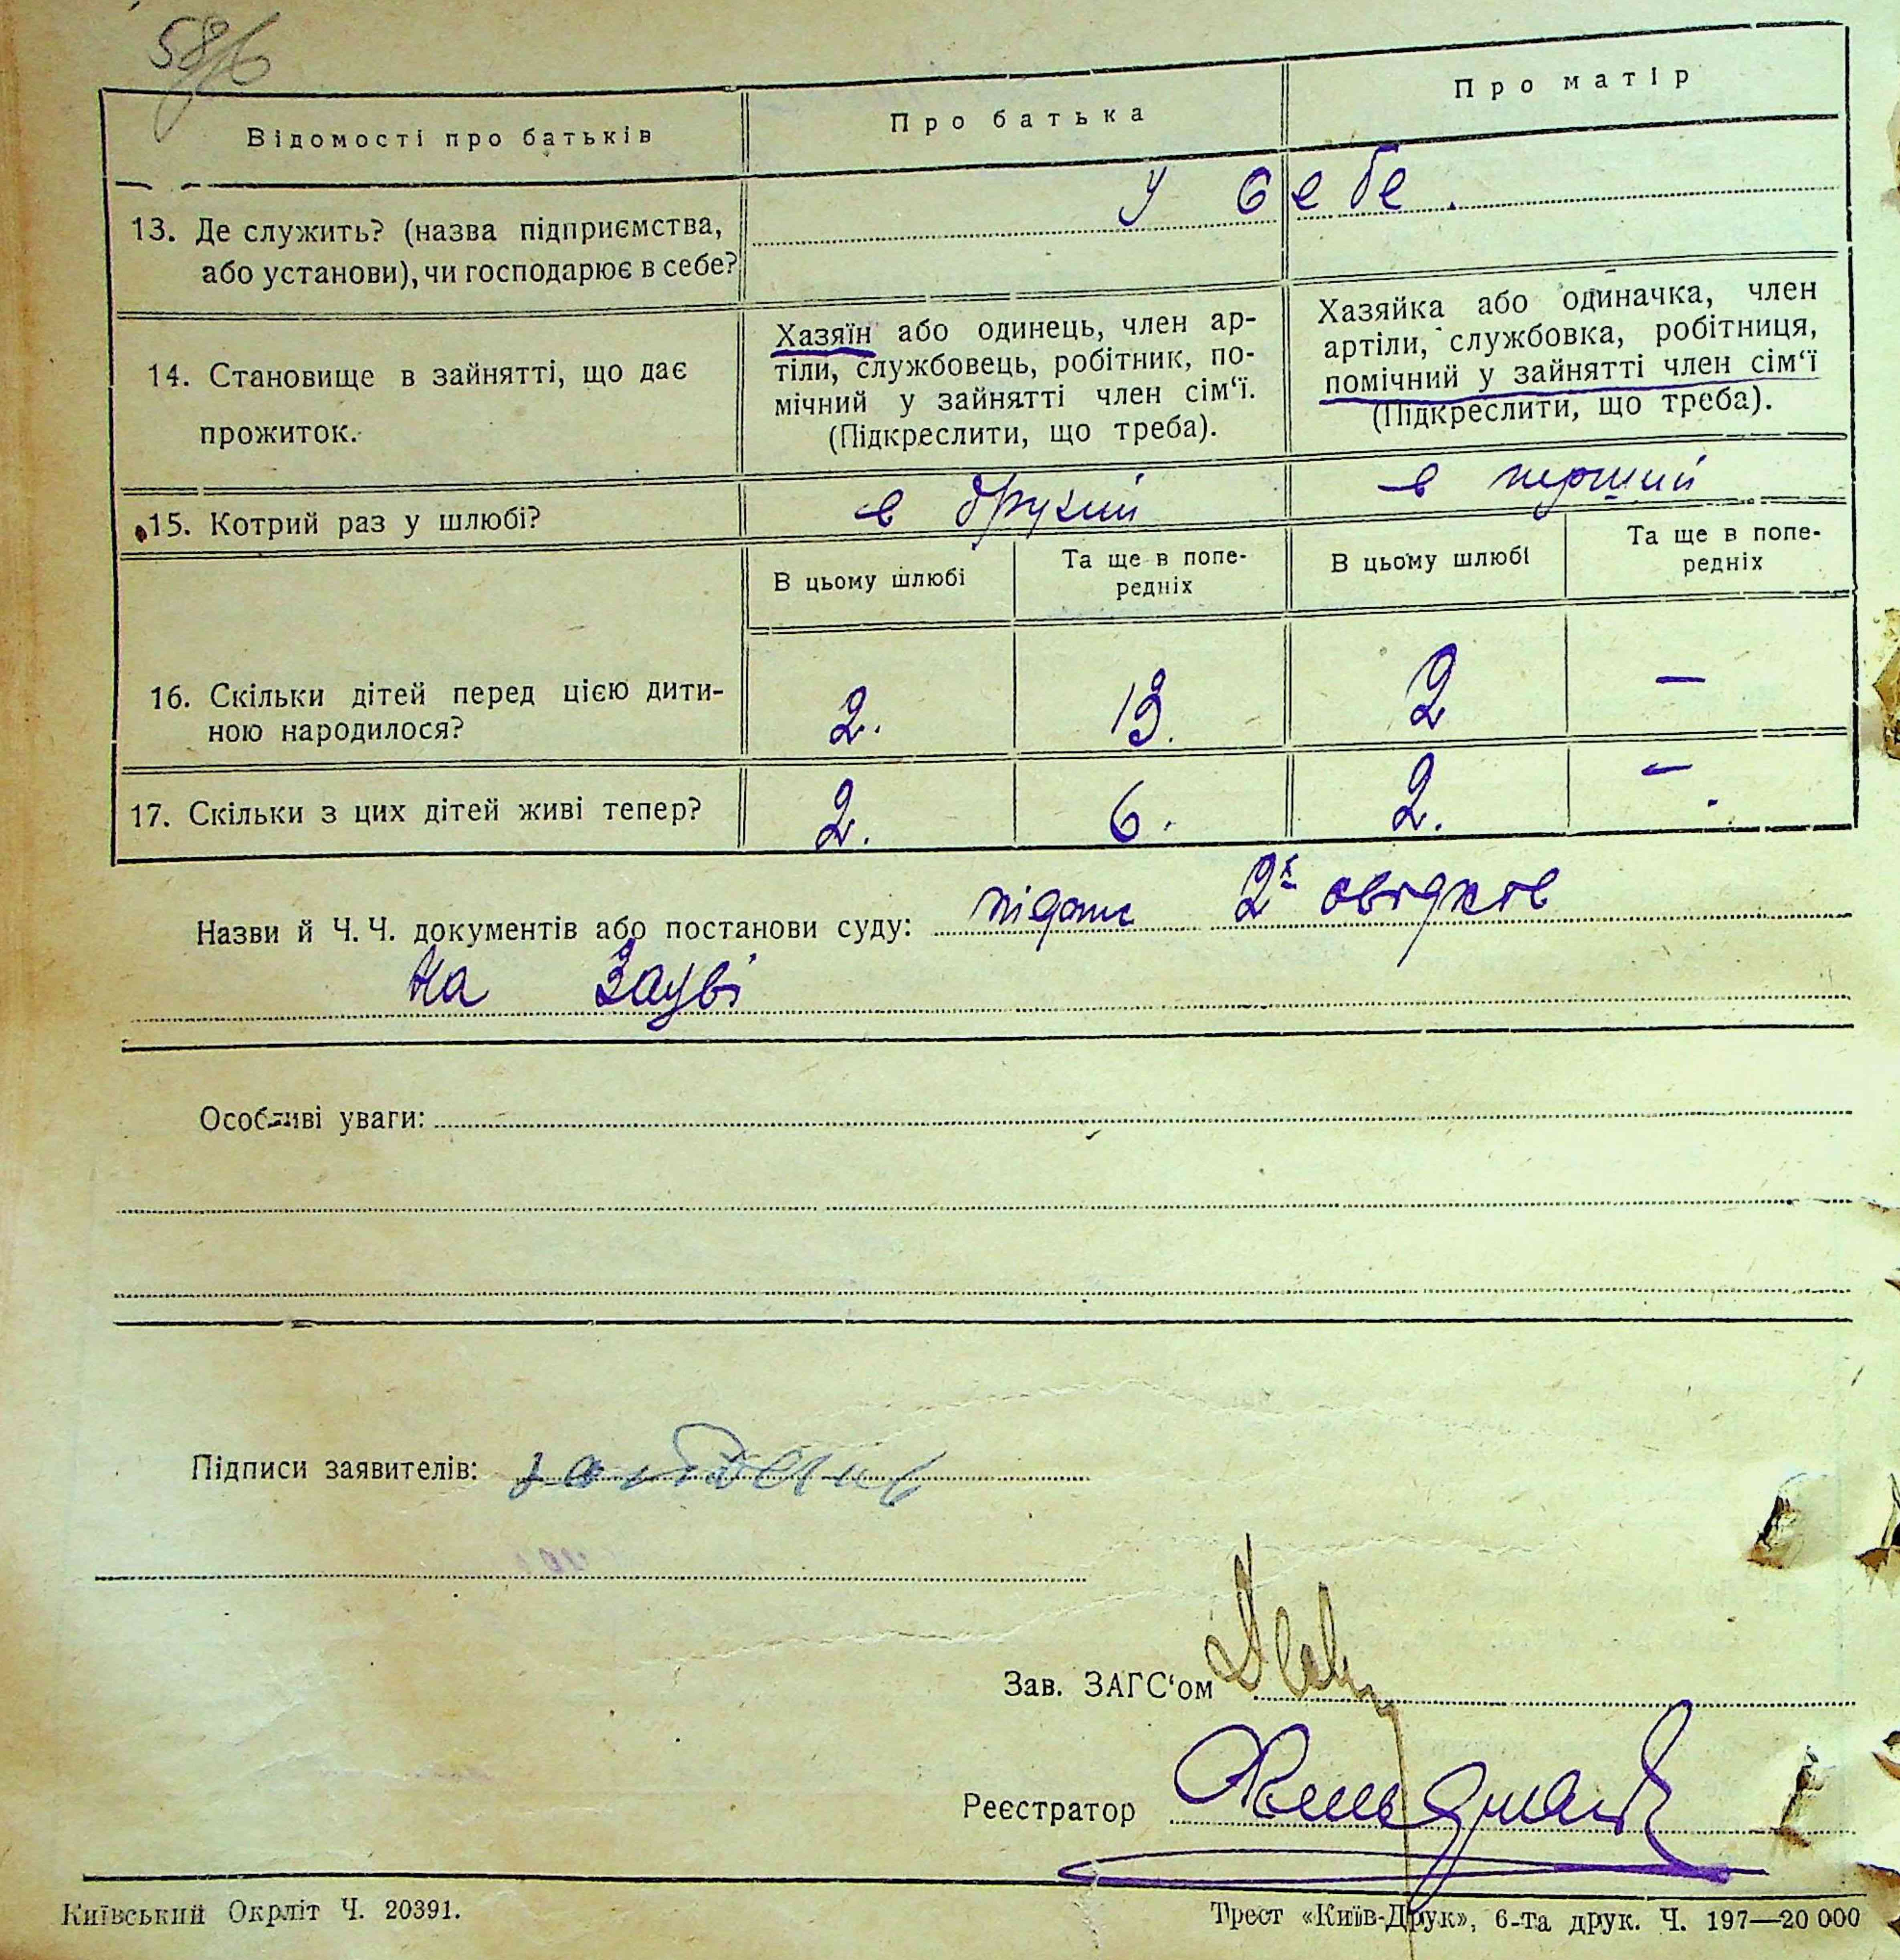 58/6
Відомості про батьків
Про батька
Про матір
13. Де служить? (назва підприємства,
або установи), чи господарює в себе?
у себе.
14. Становище в зайнятті, що дає
прожиток.
Хазяїн або одинець, член ар-
тіли, службовець, робітник, по-
мічний у зайнятті член сім‘ї.
(Підкреслити, що треба).
Хазяйка або одиначка, член
артіли, службовка, робітниця,
помічний у зайнятті член сім‘ї
(Підкреслити, що треба).
15. Котрий раз у шлюбі?
в другий
в перший
В цьому шлюбі
Та ще в попе-
редніх
В цьому шлюбі
Та ще в попе-
редніх
16. Скільки дітей перед цією дити-
ною народилося?
2.
13.
2
—
17. Скільки з цих дітей живі тепер?
2.
6.
2.
—
Назви й Ч. Ч. документів або постанови суду: 2х свідків
на заяві
Особливі уваги:
Підписи заявителів:
Зав. ЗАГС‘ом
Реєстратор
Київський Окрліт Ч. 20391.
Трест «Київ-Друк», 6-та друк. Ч. 197—20 000